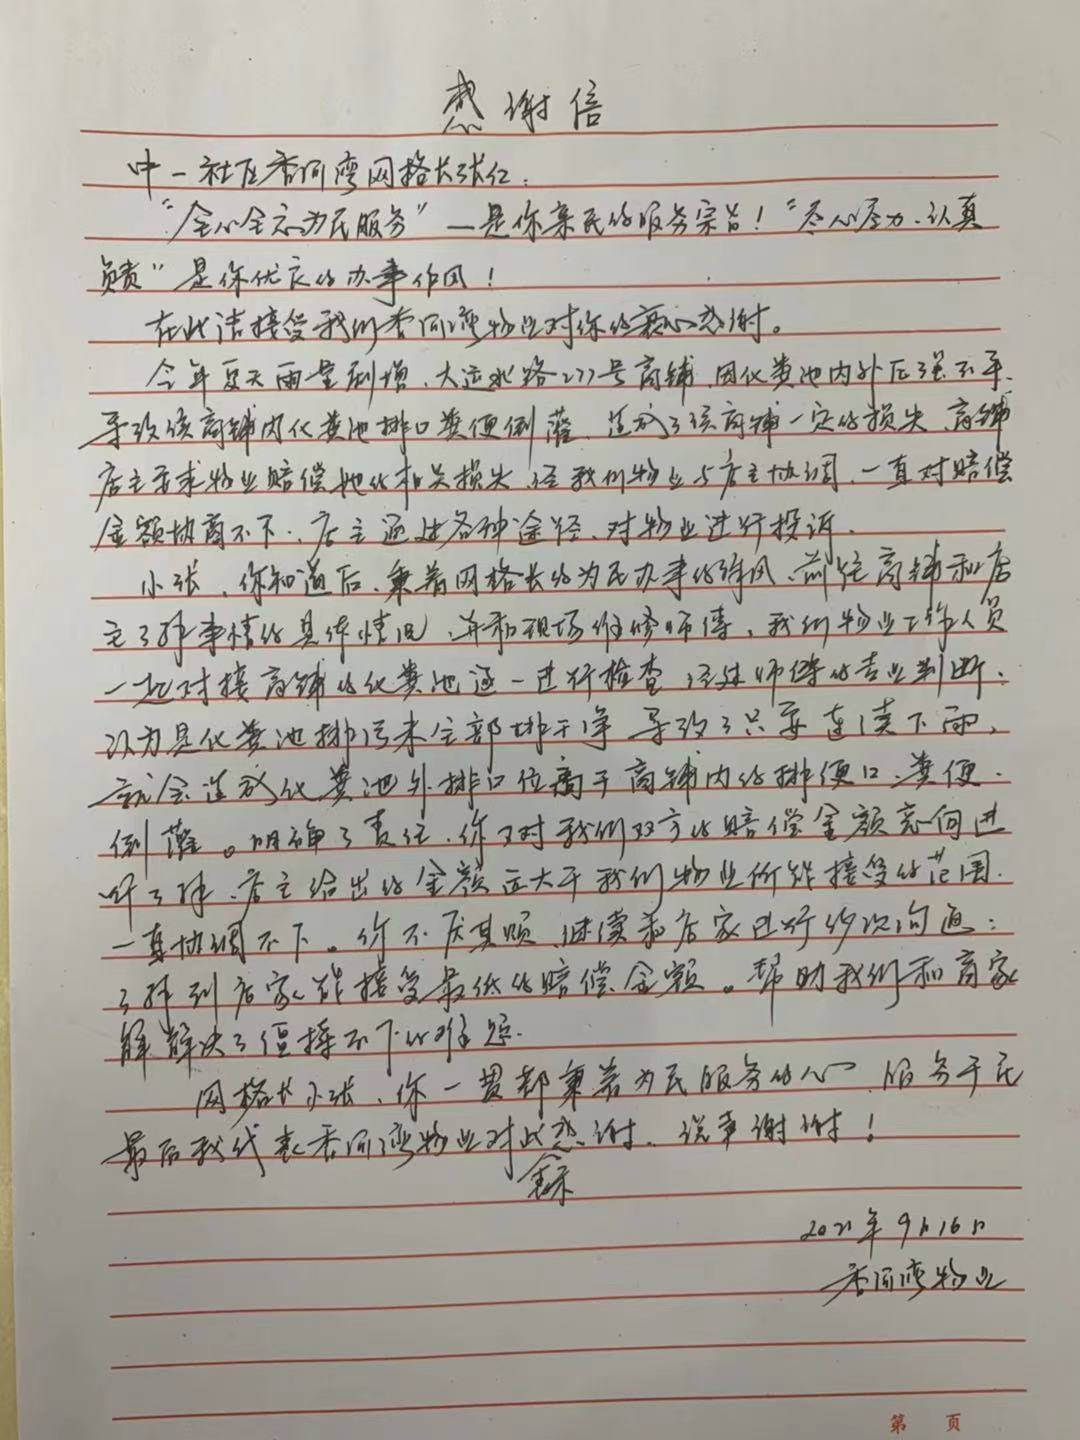 感谢信
中一社区香河湾网格长张仁：
“全心全意为民服务”一是你亲民的服务宗旨！“尽心尽力、认真
负责”是你优良的办事作风！
在此请接受我们香河湾物业对你的衷心感谢。
今年夏天雨量剧增、大连水路277号商铺、因化粪池内外压强不平、
导致该商铺内化粪池排口粪便倒灌、造成了该商铺一定的损失、商铺
店主要求物业赔偿她的相关损失、经我们物业与店主协调、一直对赔偿
金额协商不下、店主通过各种途径、对物业进行投诉.
小张、你知道后、秉着网格长的为民办事的作风、前往商铺和店
主了解事情的具体情况、并和现场维修师傅、我们物业工作人员
一起对接商铺的化粪池逐一进行检查、经过师傅的专业判断、
认为是化粪池排污未全部排干净 导致了只要连续下雨、
就会造成化粪池外排口位高于商铺内的排便口、粪便.
倒灌。明确了责任、你又对我们双方的赔偿金额意向进
行了解、店主给出的金额远大于我们物业所能接受的范围.
一直协调不下。你不厌其烦、继续和店家进行多次沟通:
了解到店家能接受最低的赔偿金额。帮助我们和商家
解解决了僵持不下的难题.
网格长小张、你一贯都秉着为民服务的心、服务于民
最后我代表香河湾物业对此感谢、说声谢谢！
表示
2021年9月16日
香河湾物业
第 页